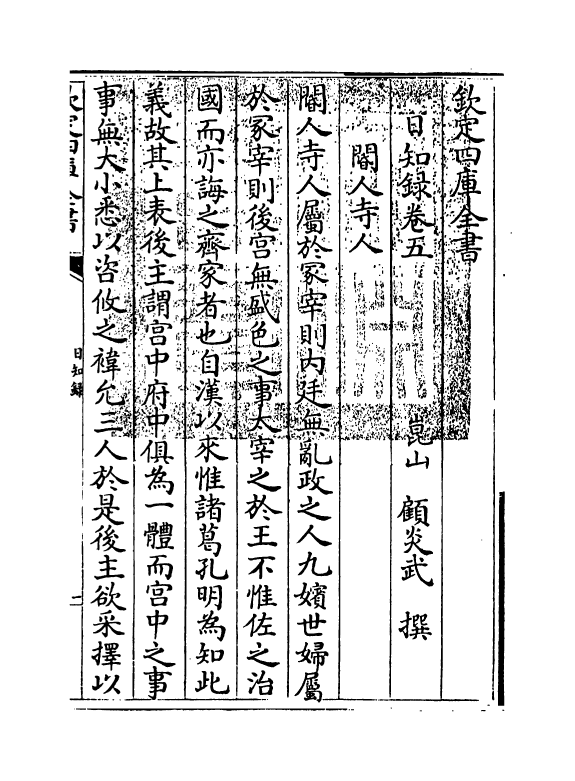 欽定四庫全書
日知錄卷五
崑山 顧炎武 撰
閽人寺人
閽人寺人屬於冢宰則内廷無亂政之人九嬪世婦屬
於冢宰則後宮無盛色之事太宰之於王不惟佐之治
國而亦誨之齊家者也自漢以來惟諸葛孔明為知此
義故其上表後主謂宮中府中俱為一體而宮中之事
事無大小悉以咨攸之禕允三人於是後主欲采擇以
欽定四庫全書
日知錄
一